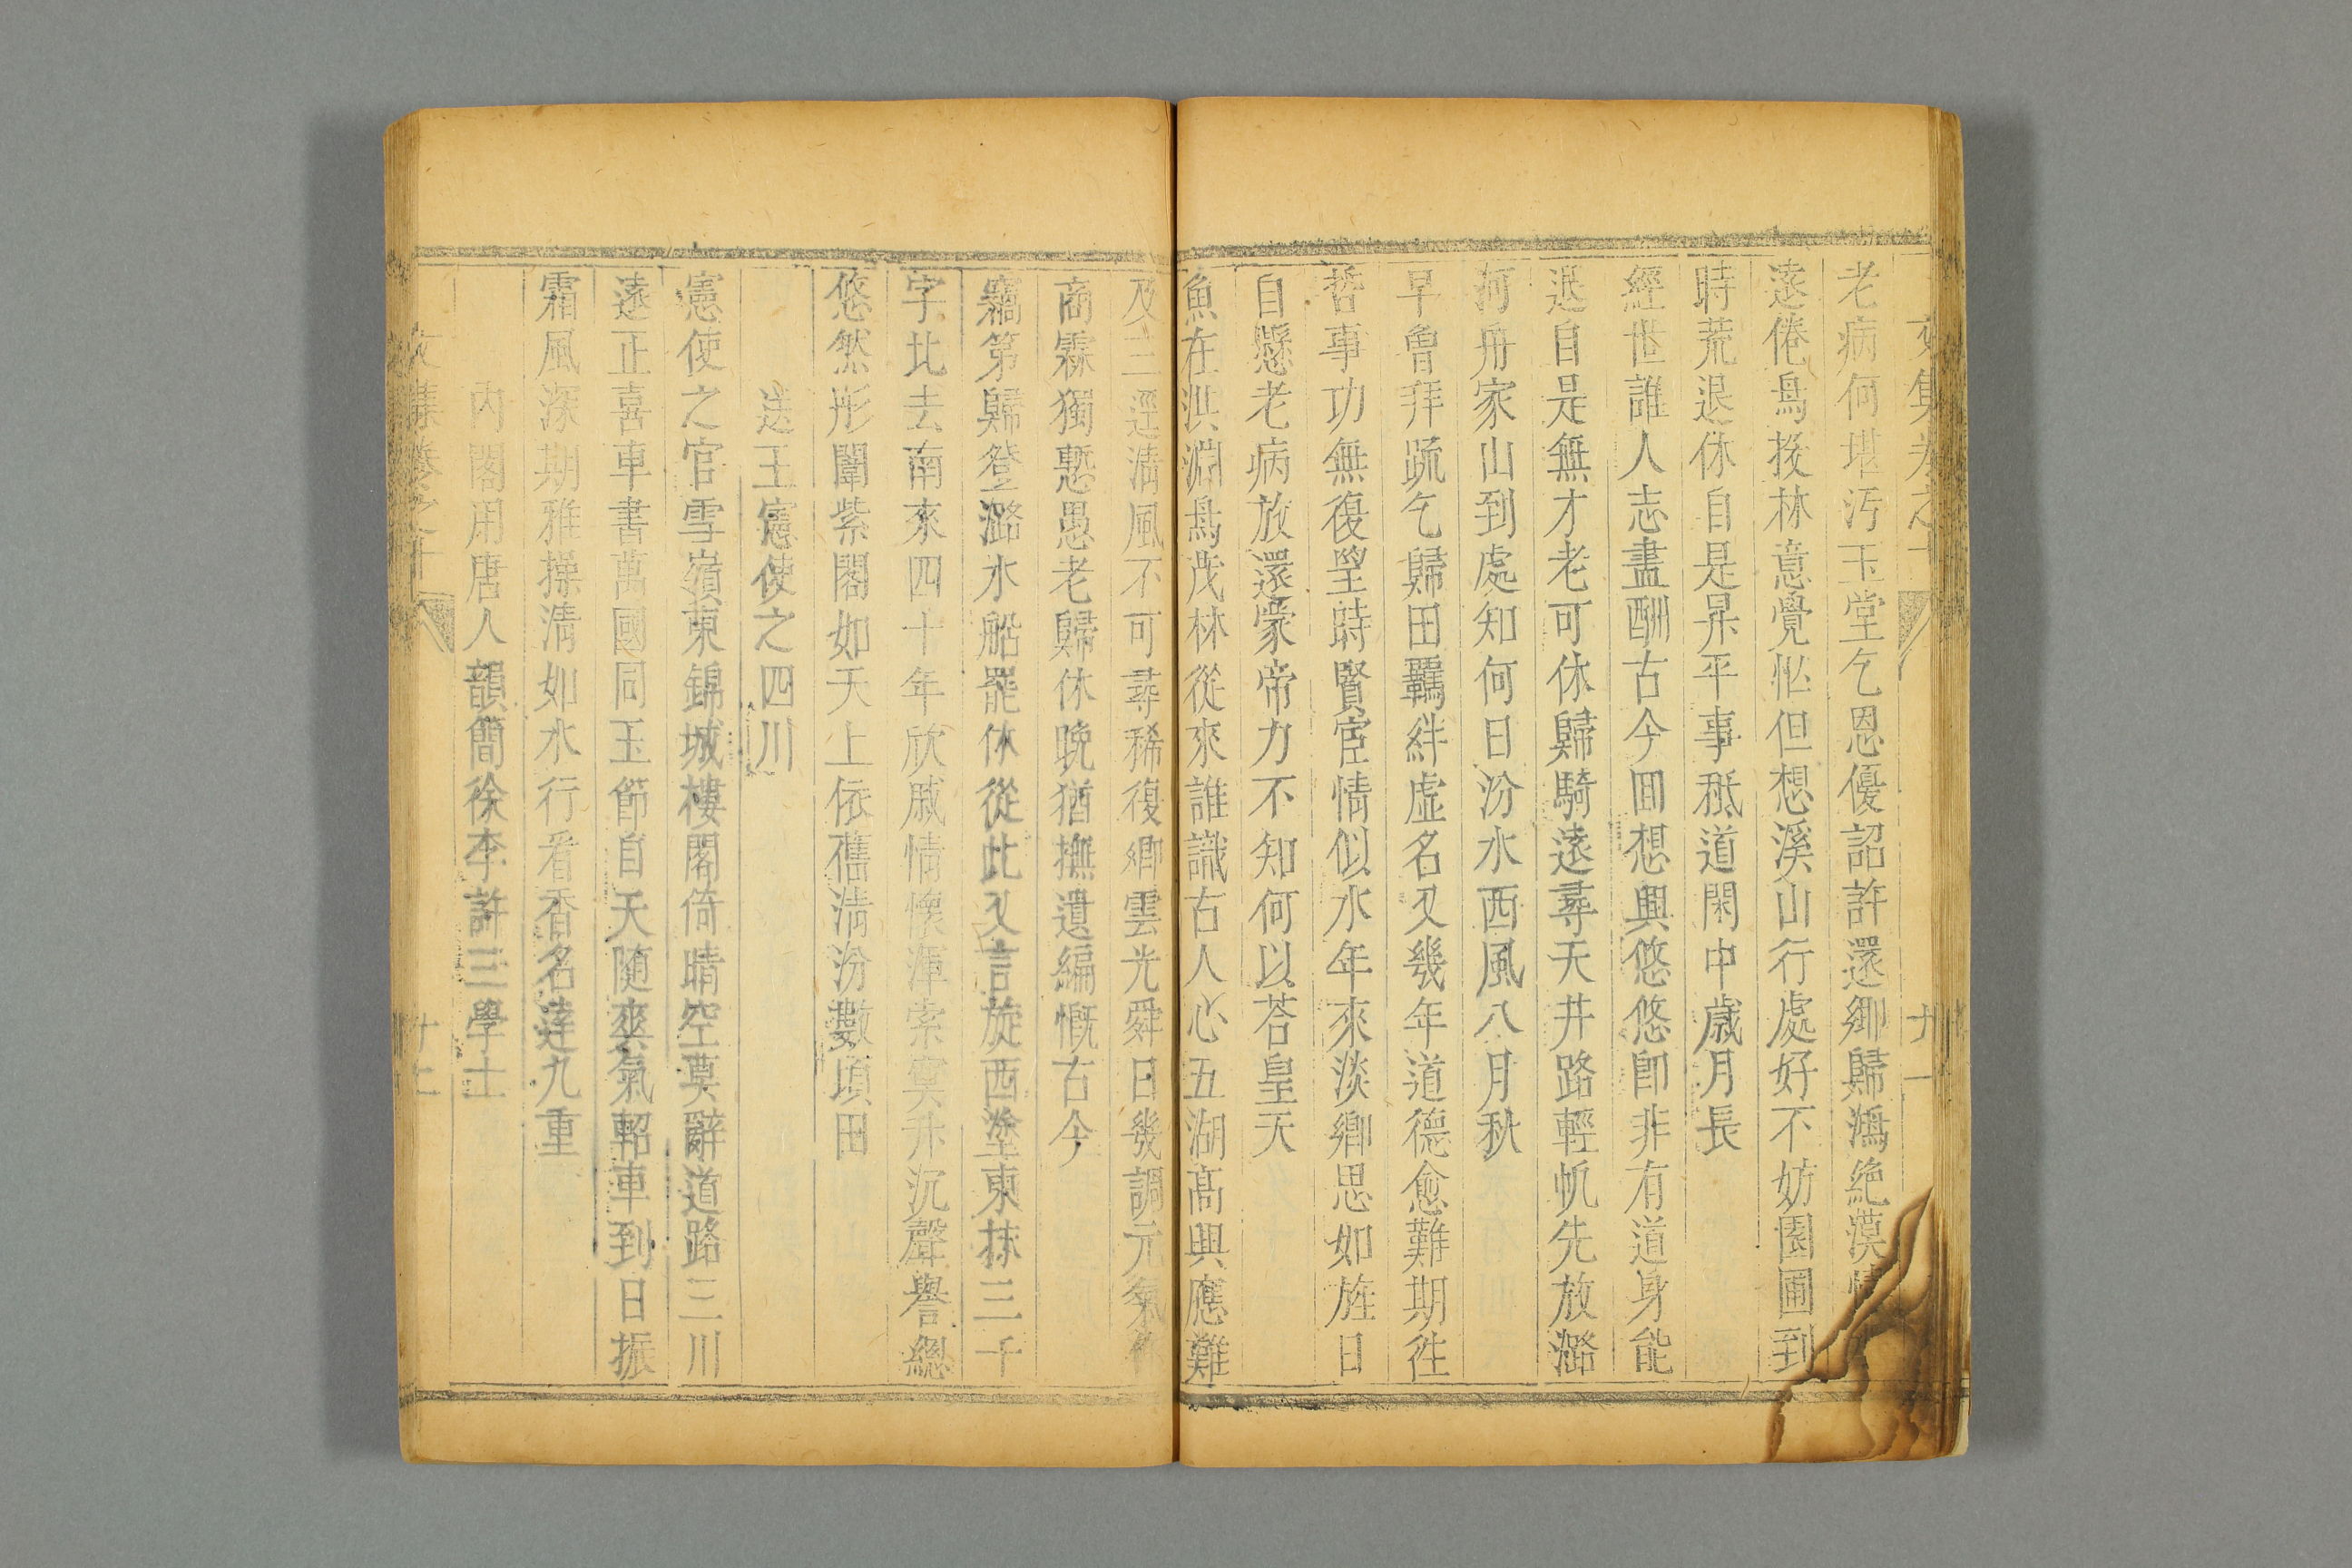 老病何堪汚玉堂乞恩優詔許還鄉歸鴻絶漠
逺倦鳥投林意覺忙但想溪山行處好不妨園圃到
時荒退休自是昇平事秪道閑中歳月長
經世誰人志盡酬古今囬想興悠悠卽非有道身能
退自是無才老可休歸騎逺尋天井路輕帆先放潞
河舟家山到處知何日汾水西風八月秋
早曾拜疏乞歸田羈絆虚名又幾年道德愈難期徃
哲事功無復望時賢宦情似水年來淡鄉思如旌日
自懸老病放還蒙帝力不知何以荅皇天
魚在洪淵鳥茂林從來誰識古人心五湖髙興應難
及三逕清風不可尋稀復卿雲光舜日幾調元氣
商霖獨慙愚老歸休晩猶撫遺編慨古今
竊第歸登潞水船罷休從此又言旋西塗東抹三千
字北去南來四十年欣戚情懷渾索寞升沉聲譽緫
悠然彤闈紫閣如天上依舊清汾數頃田
送王憲使之四川
憲使之官雪嶺東錦城樓閣倚晴空莫辭道路三川
逺正喜車書萬國同玉節自天随爽氣軺車到日振
霜風深期雅操清如水行看香名逹九重
内閣用唐人韻簡徐李許三學士
文集卷之十